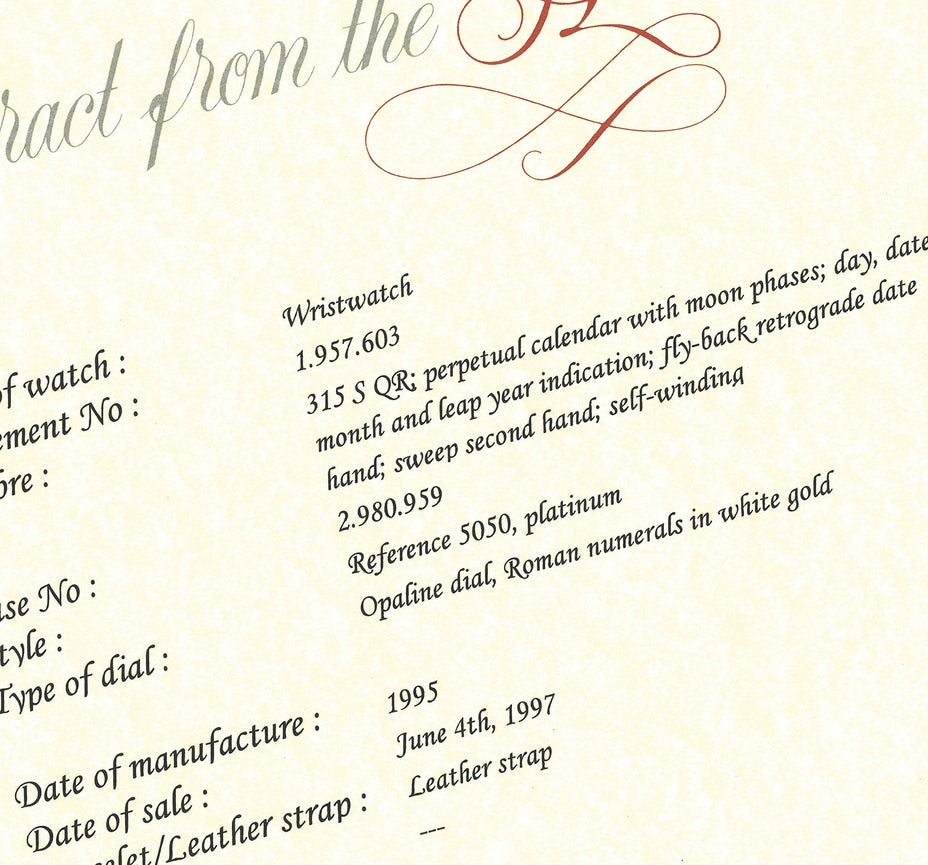 ract from the
Wristwatch
of watch :
1.957.603
ement No :
315 S QR; perpetual calendar with moon phases; day, date
bre :
month and leap year indication; fly-back retrograde date
hand; sweep second hand; self-winding
2.980.959
ase No :
Reference 5050, platinum
tyle :
Opaline dial, Roman numerals in white gold
Type of dial :
1995
Date of manufacture :
June 4th, 1997
Date of sale :
Leather strap
elet/Leather strap :
---